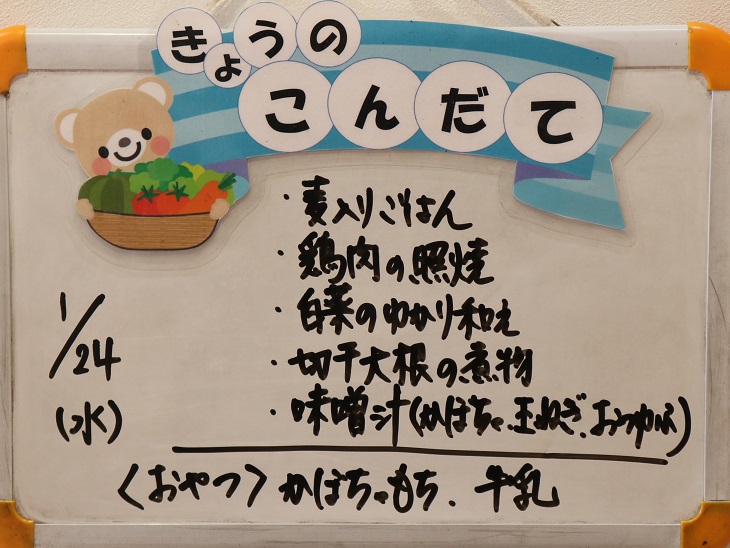 きょうの
こんだて
1/24
(水)
・麦入りごはん
・鶏肉の照焼
・白菜のゆかり和え
・切干大根の煮物
・味噌汁(かぼちゃ、玉ねぎ、おつゆふ)
〈おやつ〉かぼちゃもち、牛乳